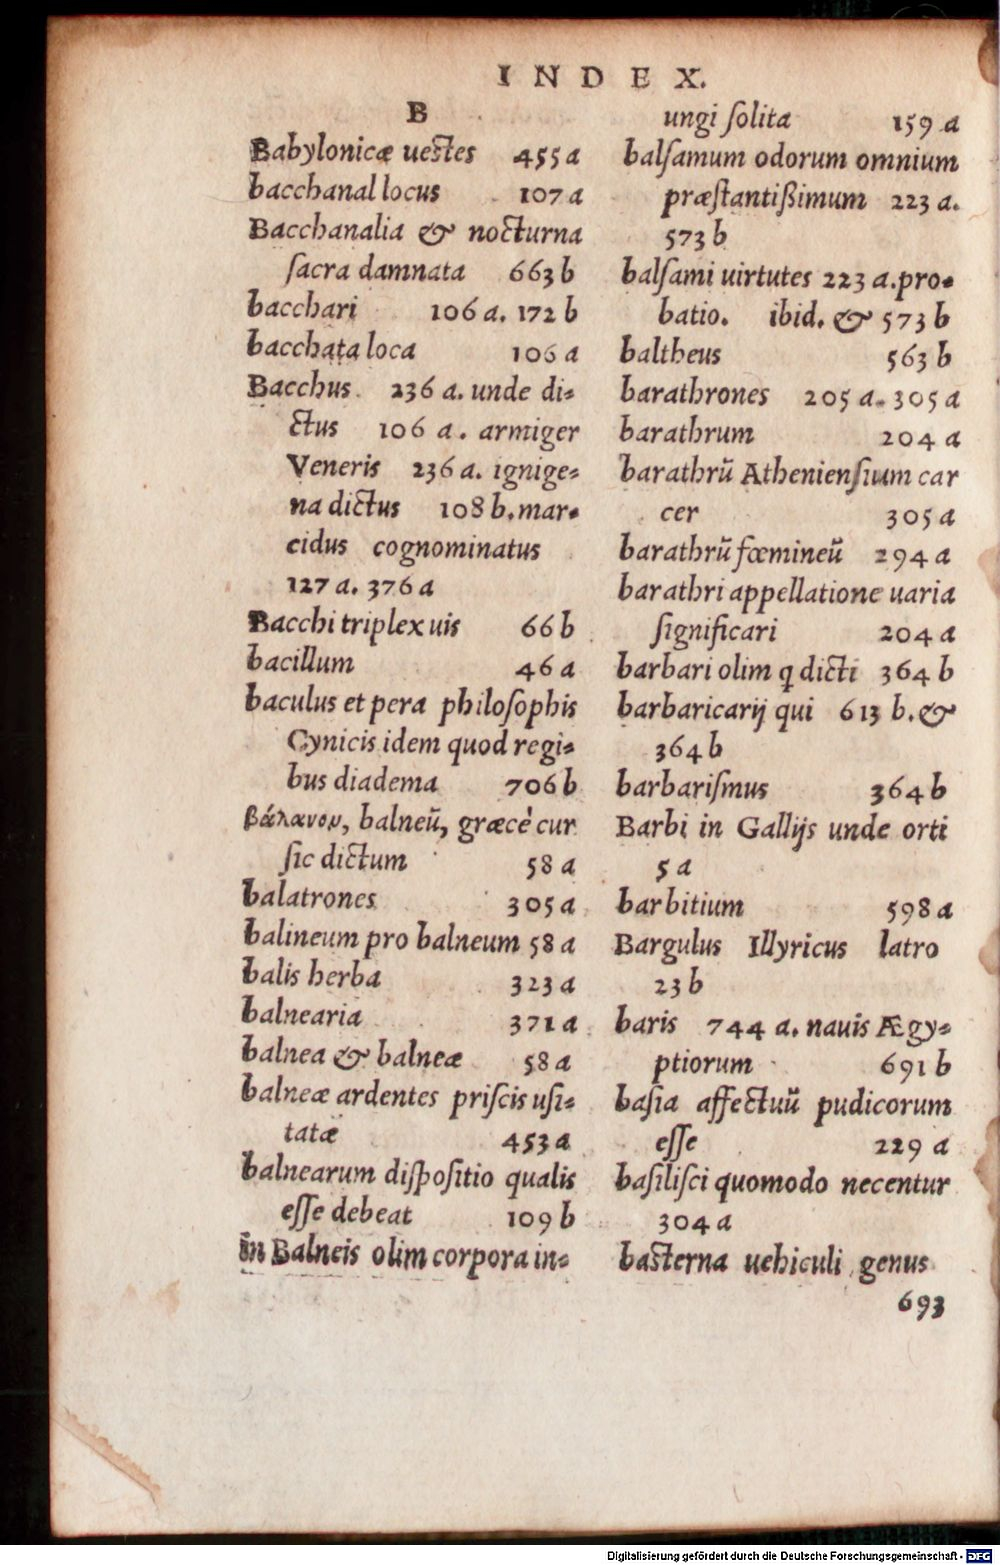 INDEX.
B
Babylonicæ uestes 455 a
bacchanal locus 107 a
Bacchanalia & nocturna
ſacra damnata 663 b
bacchari 106 a. 172 b
bacchata loca 106 a
Bacchus 236 a. unde di-
ctus 106 a. armiger
Veneris 236 a. ignige-
na dictus 108 b. mar-
cidus cognominatus
127 a. 376 a
Bacchi triplex uis 66 b
bacillum 46 a
baculus et pera philoſophis
Cynicis idem quod regi-
bus diadema 706 b
βάλανον, balneū, græcè cur
ſic dictum 58 a
balatrones 305 a
balineum pro balneum 58 a
balis herba 323 a
balnearia 371 a
balnea & balneæ 58 a
balneæ ardentes priſcis uſi-
tatæ 453 a
balnearum diſpoſitio qualis
eſſe debeat 109 b
in Balneis olim corpora in-
ungi ſolita 159 a
balſamum odorum omnium
præſtantißimum 223 a.
573 b
balſami uirtutes 223 a. pro-
batio. ibid. & 573 b
baltheus 563 b
barathrones 205 a. 305 a
barathrum 204 a
barathrū Athenienſium car
cer 305 a
barathrū fœmineū 294 a
barathri appellatione uaria
ſignificari 204 a
barbari olim q dicti 364 b
barbaricarij qui 613 b. &
364 b
barbariſmus 364 b
Barbi in Gallijs unde orti
5 a
barbitium 598 a
Bargulus Illyricus latro
23 b
baris 744 a. nauis Ægy-
ptiorum 691 b
baſia affectuū pudicorum
eſſe 229 a
baſiliſci quomodo necentur
304 a
basterna uehiculi genus
693
Digitalisierung gefördert durch die Deutsche Forschungsgemeinschaft - DFG